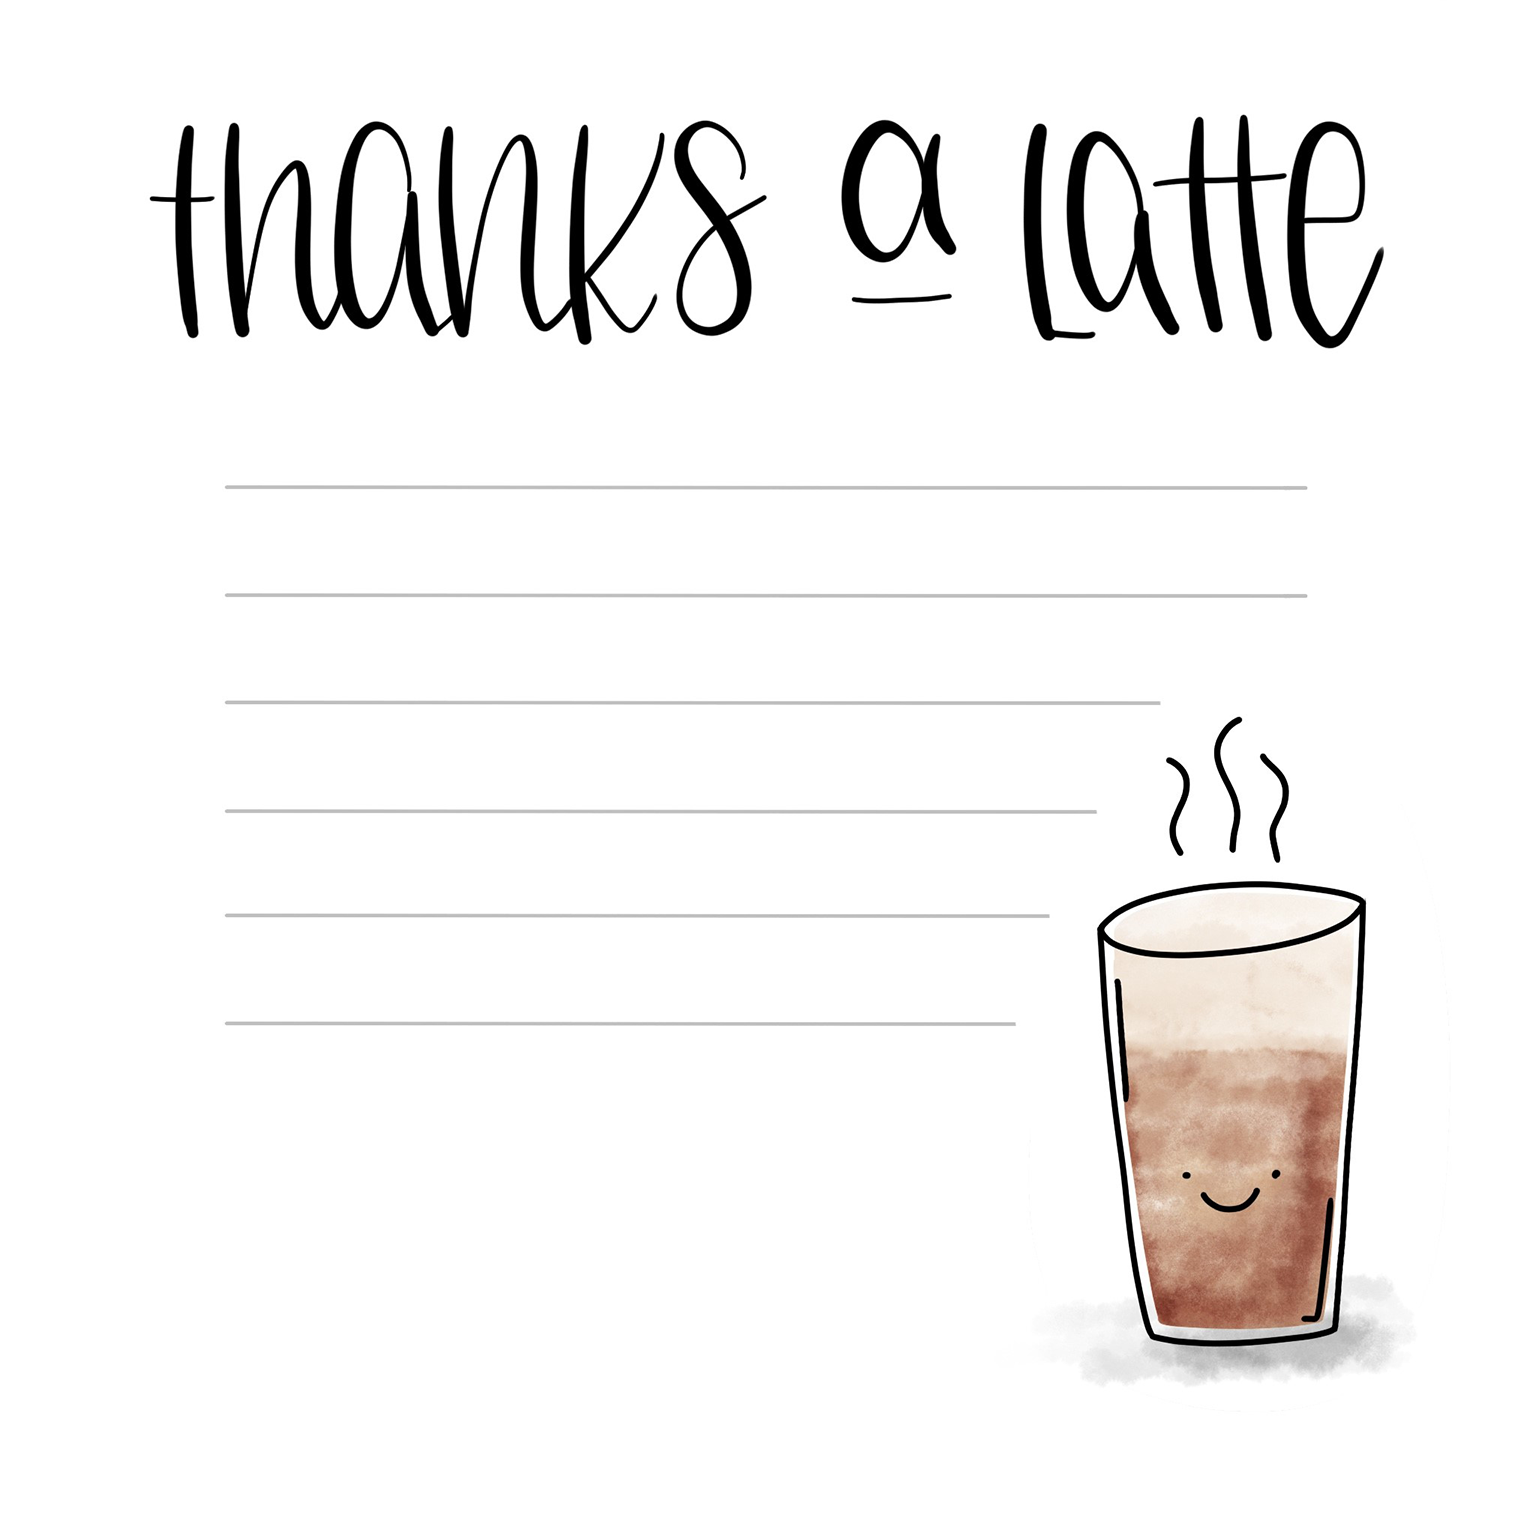 thanks a latte